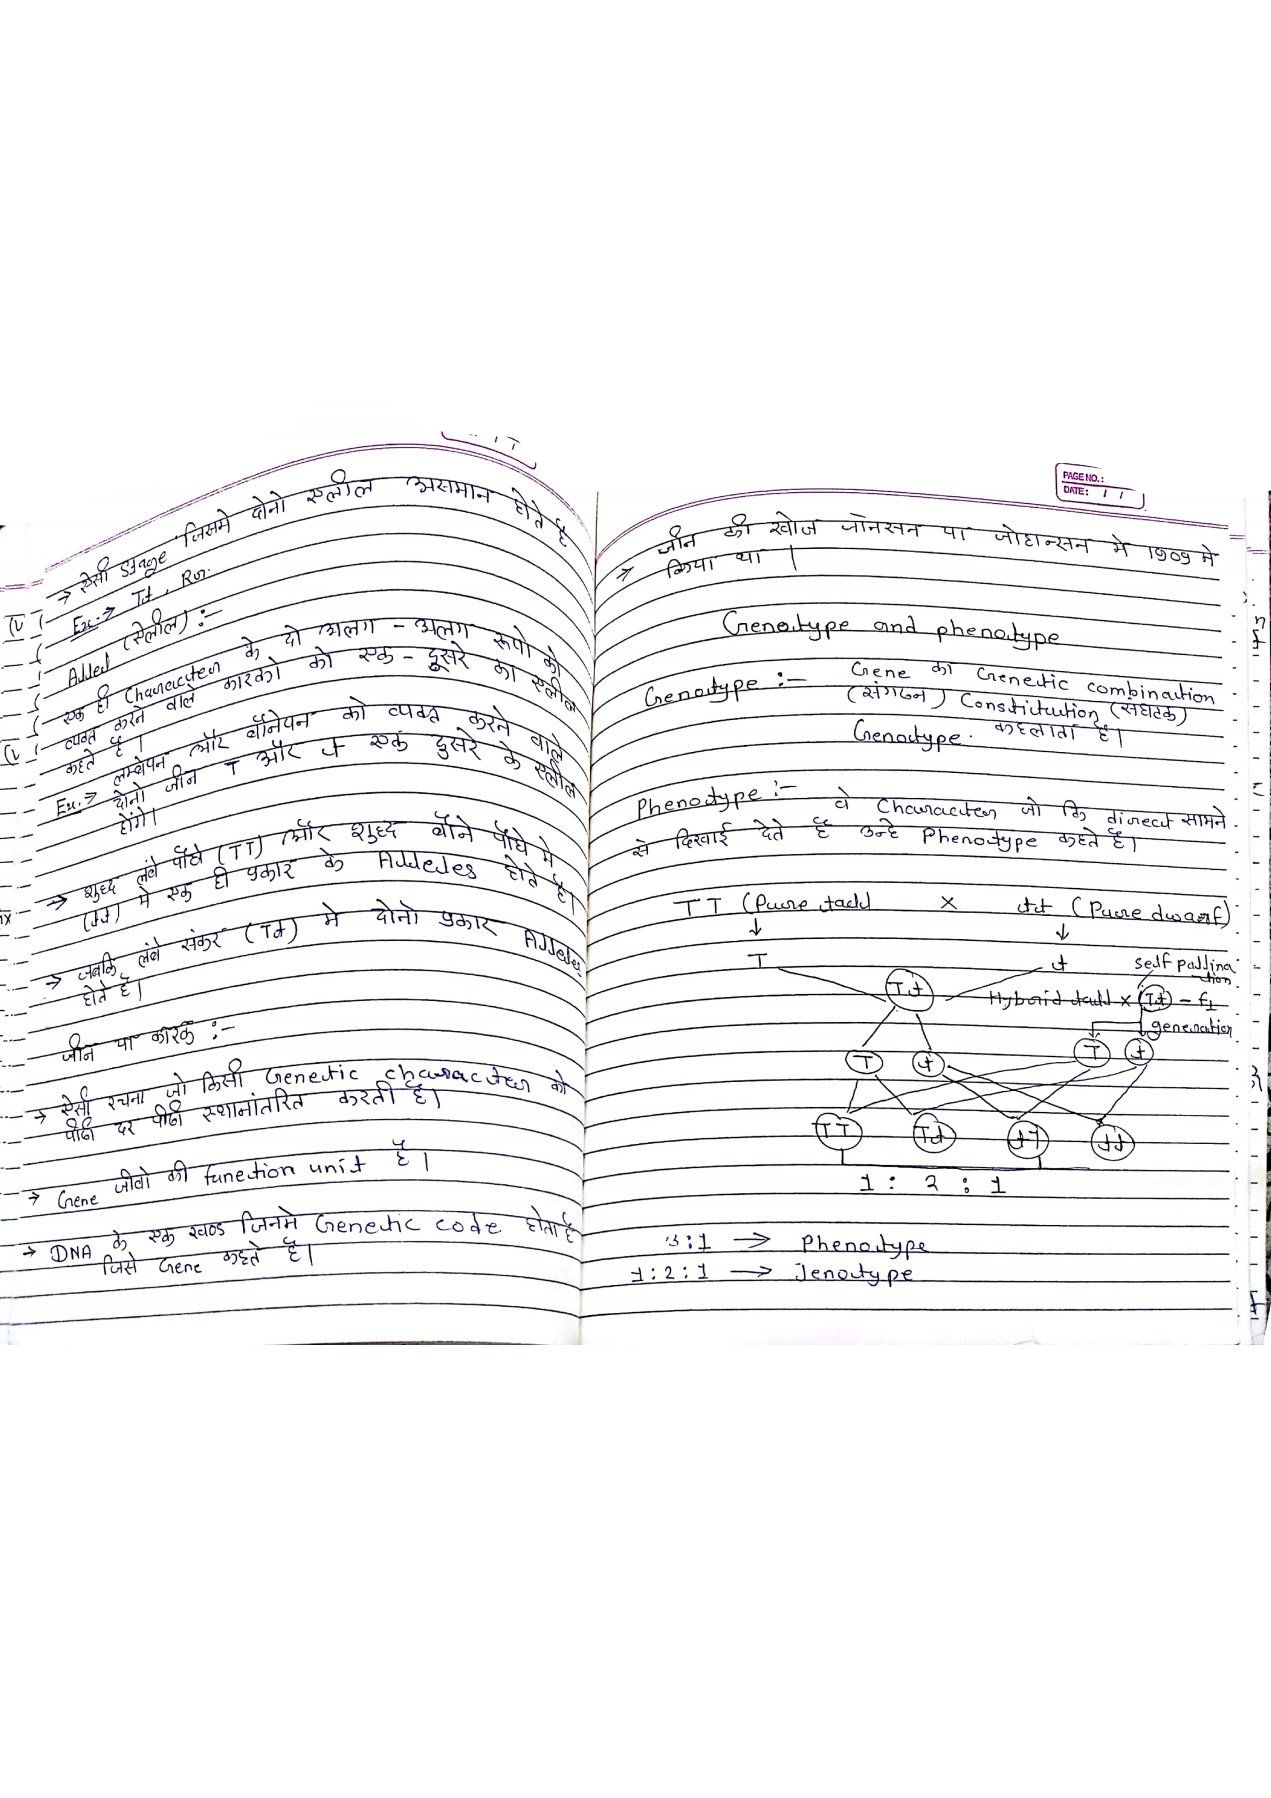 → ऐसी stage जिसमे दोनो एलील असमान होते है
Ex:→ Tt, Rr.
Allel (ऐलील) :-
एक ही Character के दो अलग - अलग रूपो को
व्यक्त करने वाले कारको को एक - दूसरे का एलील
कहते है।
Ex.→ लम्बेपन और बौनेपन को व्यक्त करने वाले
दोनो जीन T और t एक दुसरे के एलील
होंगे।
→ शुध्द लंबे पौधे (TT) और शुध्द बौने पौधे मे
(tt) मे एक ही प्रकार के Alleles होते है।
→ जबकि लंबे संकर (Tt) मे दोनो प्रकार Alleles
होते है।
जीन या कारक :-
→ ऐसी रचना जो किसी Genetic character को
पीढी दर पीढी स्थानांतरित करती है।
→ Gene जीवो की function unit है।
→ DNA के एक खण्ड जिनमे Genetic code होता है
जिसे Gene कहते है।
PAGE NO.:
DATE: / /
→ जीन की खोज जॉनसन या जोहान्सन मे 1909 मे
किया था।
Genotype and phenotype
Genotype :- Gene का Genetic combination
(संगठन) Constitution (संघटक)
Genotype. कहलाता है।
Phenotype :- वे Character जो कि direct सामने
से दिखाई देते है उन्हे Phenotype कहते है।
TT (Pure tall × tt (Pure dwarf)
↓ ↓
T t self pallina
tion
Tt Hybrid tall × Tt - f1
generation
T t T t
TT Tt tT tt
1 : 2 : 1
3:1 → Phenotype
1:2:1 → Jenotype